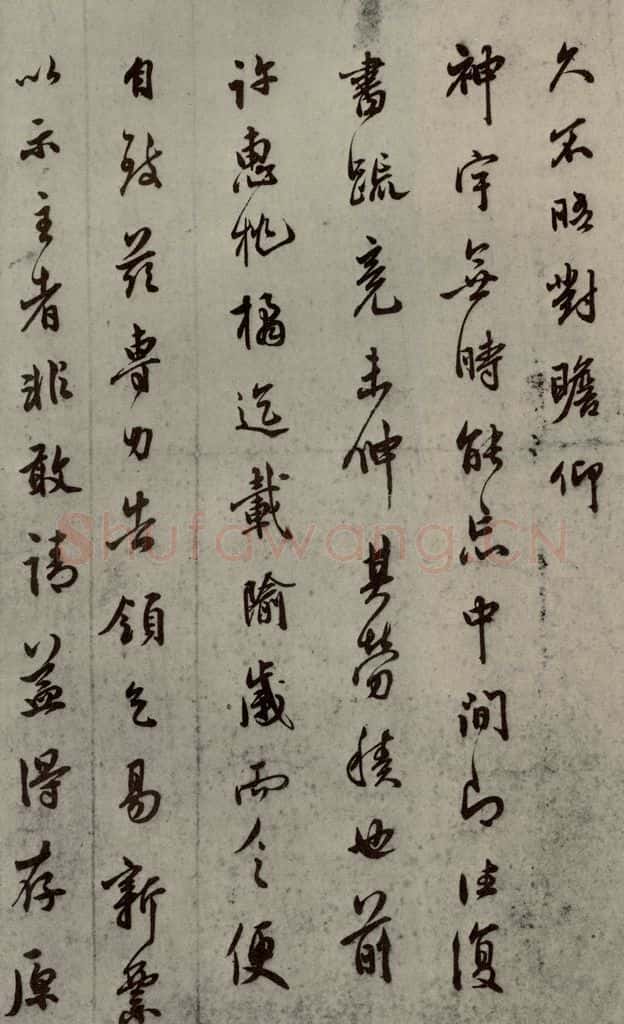 久不晤對瞻仰
神宇無時能忘中間即往復
書疏竟未伸其勞積也前
許惠桃橘迄載踰歲而今便
自致茲專力告領乞易新票
以示主者非敢請益得存原
Shufawang.CN